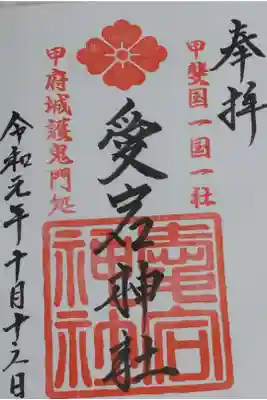 奉拝
甲斐国一国一社
愛宕神社
愛宕神社
甲府城護鬼門処
令和元年十月十三日